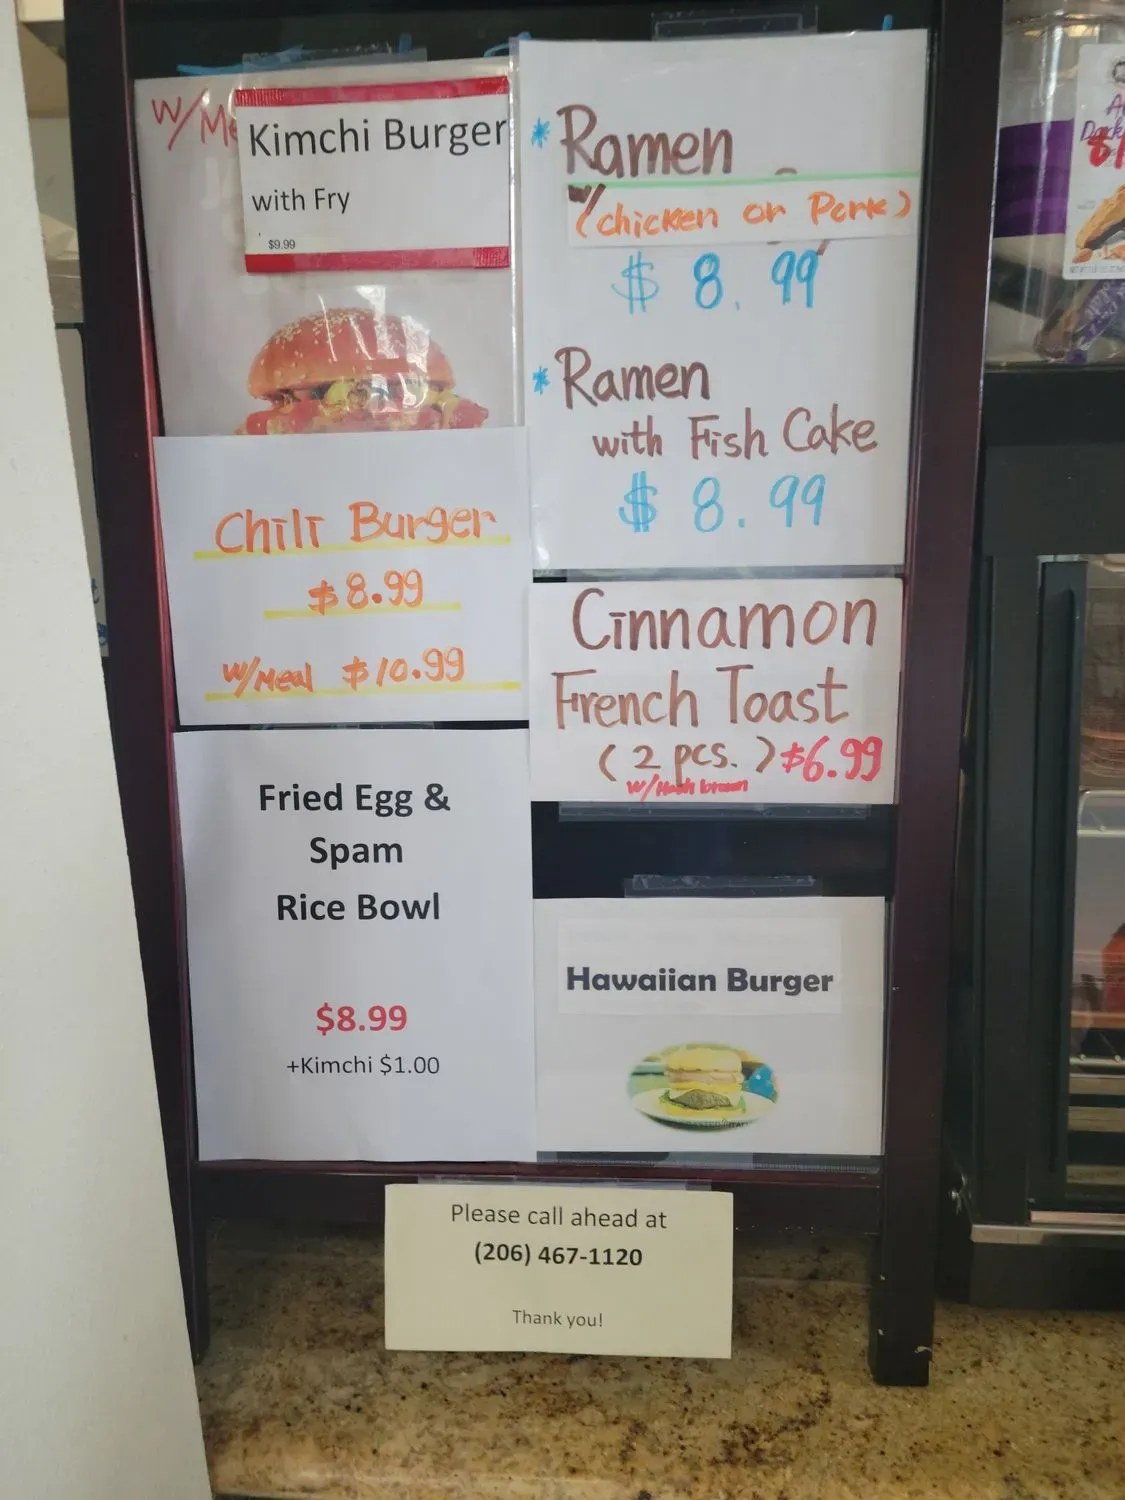 W/Me
Kimchi Burger
with Fry
$9.99
Chili Burger
$8.99
w/Meal $10.99
Fried Egg &
Spam
Rice Bowl
$8.99
+Kimchi $1.00
* Ramen
w/
(chicken or Pork)
$8.99
* Ramen
with Fish Cake
$8.99
Cinnamon
French Toast
(2 pcs.) $6.99
w/Hash brown
Hawaiian Burger
Please call ahead at
(206) 467-1120
Thank you!